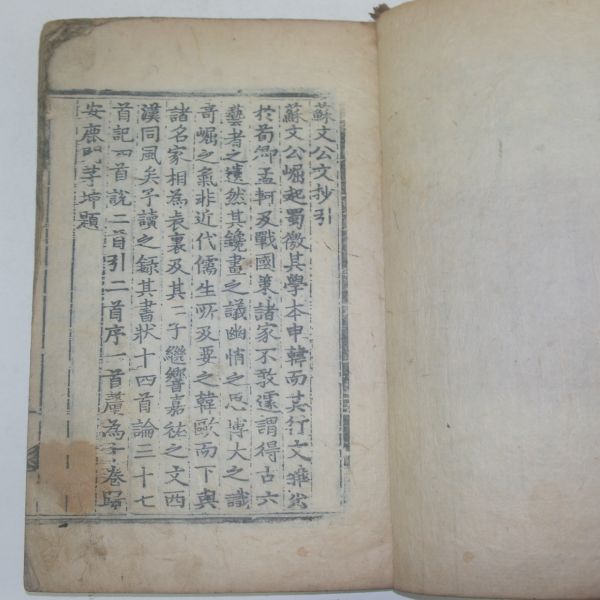 蘇文公文抄引
蘇文公崛起蜀徼其學本申韓而其行文雜出
於荀卿孟軻及戰國策諸家不敢遽謂得古六
藝者之遺然其鑱畫之議幽悄之思博大之識
奇崛之氣非近代儒生所及要之韓歐而下與
諸名家相爲表裏及其二子繼響嘉祐之文西
漢同風矣予讀之錄其書狀十四首論三十七
首記四首說二首引二首序一首釐爲十卷歸
安鹿門茅坤題